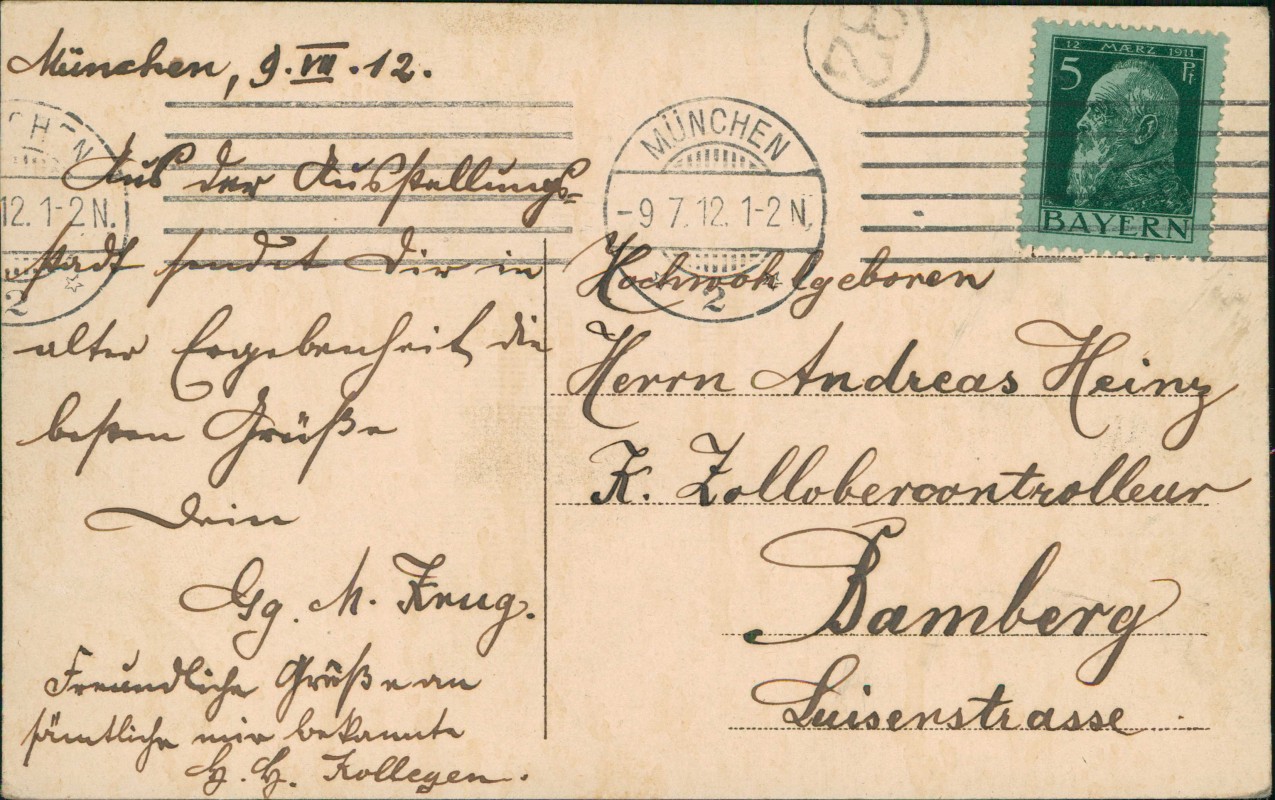 München, 9. VII. 12.
Aus der Ausstellungs=
stadt sendet Dir in
alter Ergebenheit die
besten Grüße
Dein
Gg. M. Krug.
Freundliche Grüße an
sämtliche mir bekannte
H. H. Kollegen.
CHEN
12. 1-2 N.
2
MÜNCHEN
-9.7.12. 1-2 N.
2
82
12 MÆRZ 1911
5 Pf
BAYERN
Hochwohlgeboren
Herrn Andreas Heinz
K. Zollobercontrolleur
Bamberg
Luisenstrasse